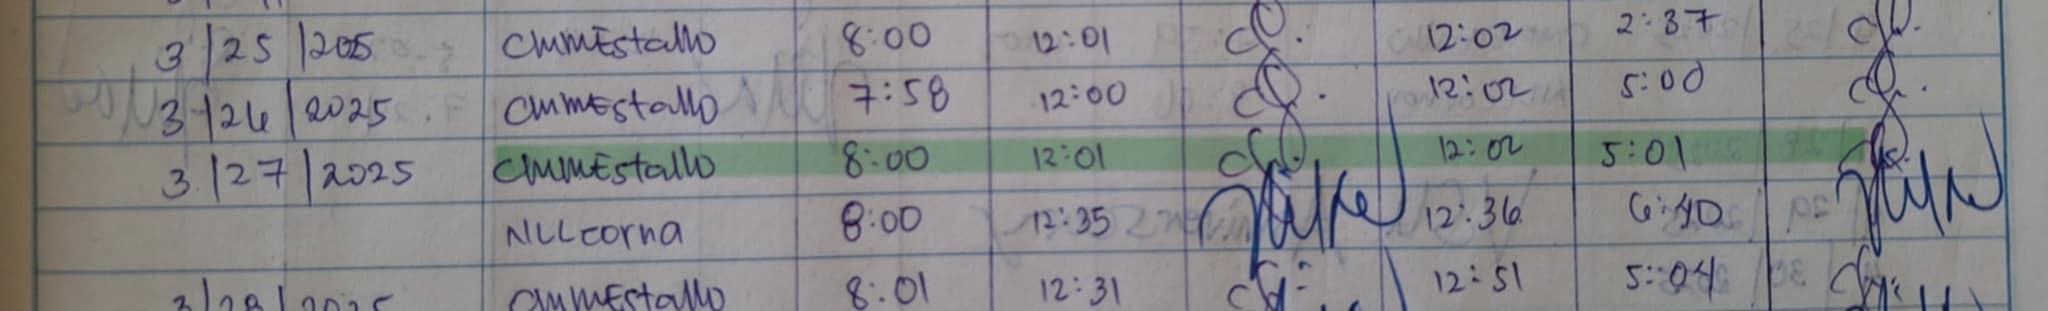 3/25/2025 CMMEstallo 8:00 12:01 12:02 2:37
3/26/2025 CMMEstallo 7:58 12:00 12:02 5:00
3/27/2025 CMMEstallo 8:00 12:01 12:02 5:01
NLLcorna 8:00 12:35 12:36 6:40
3/28/2025 CMMEstallo 8:01 12:31 12:51 5:04